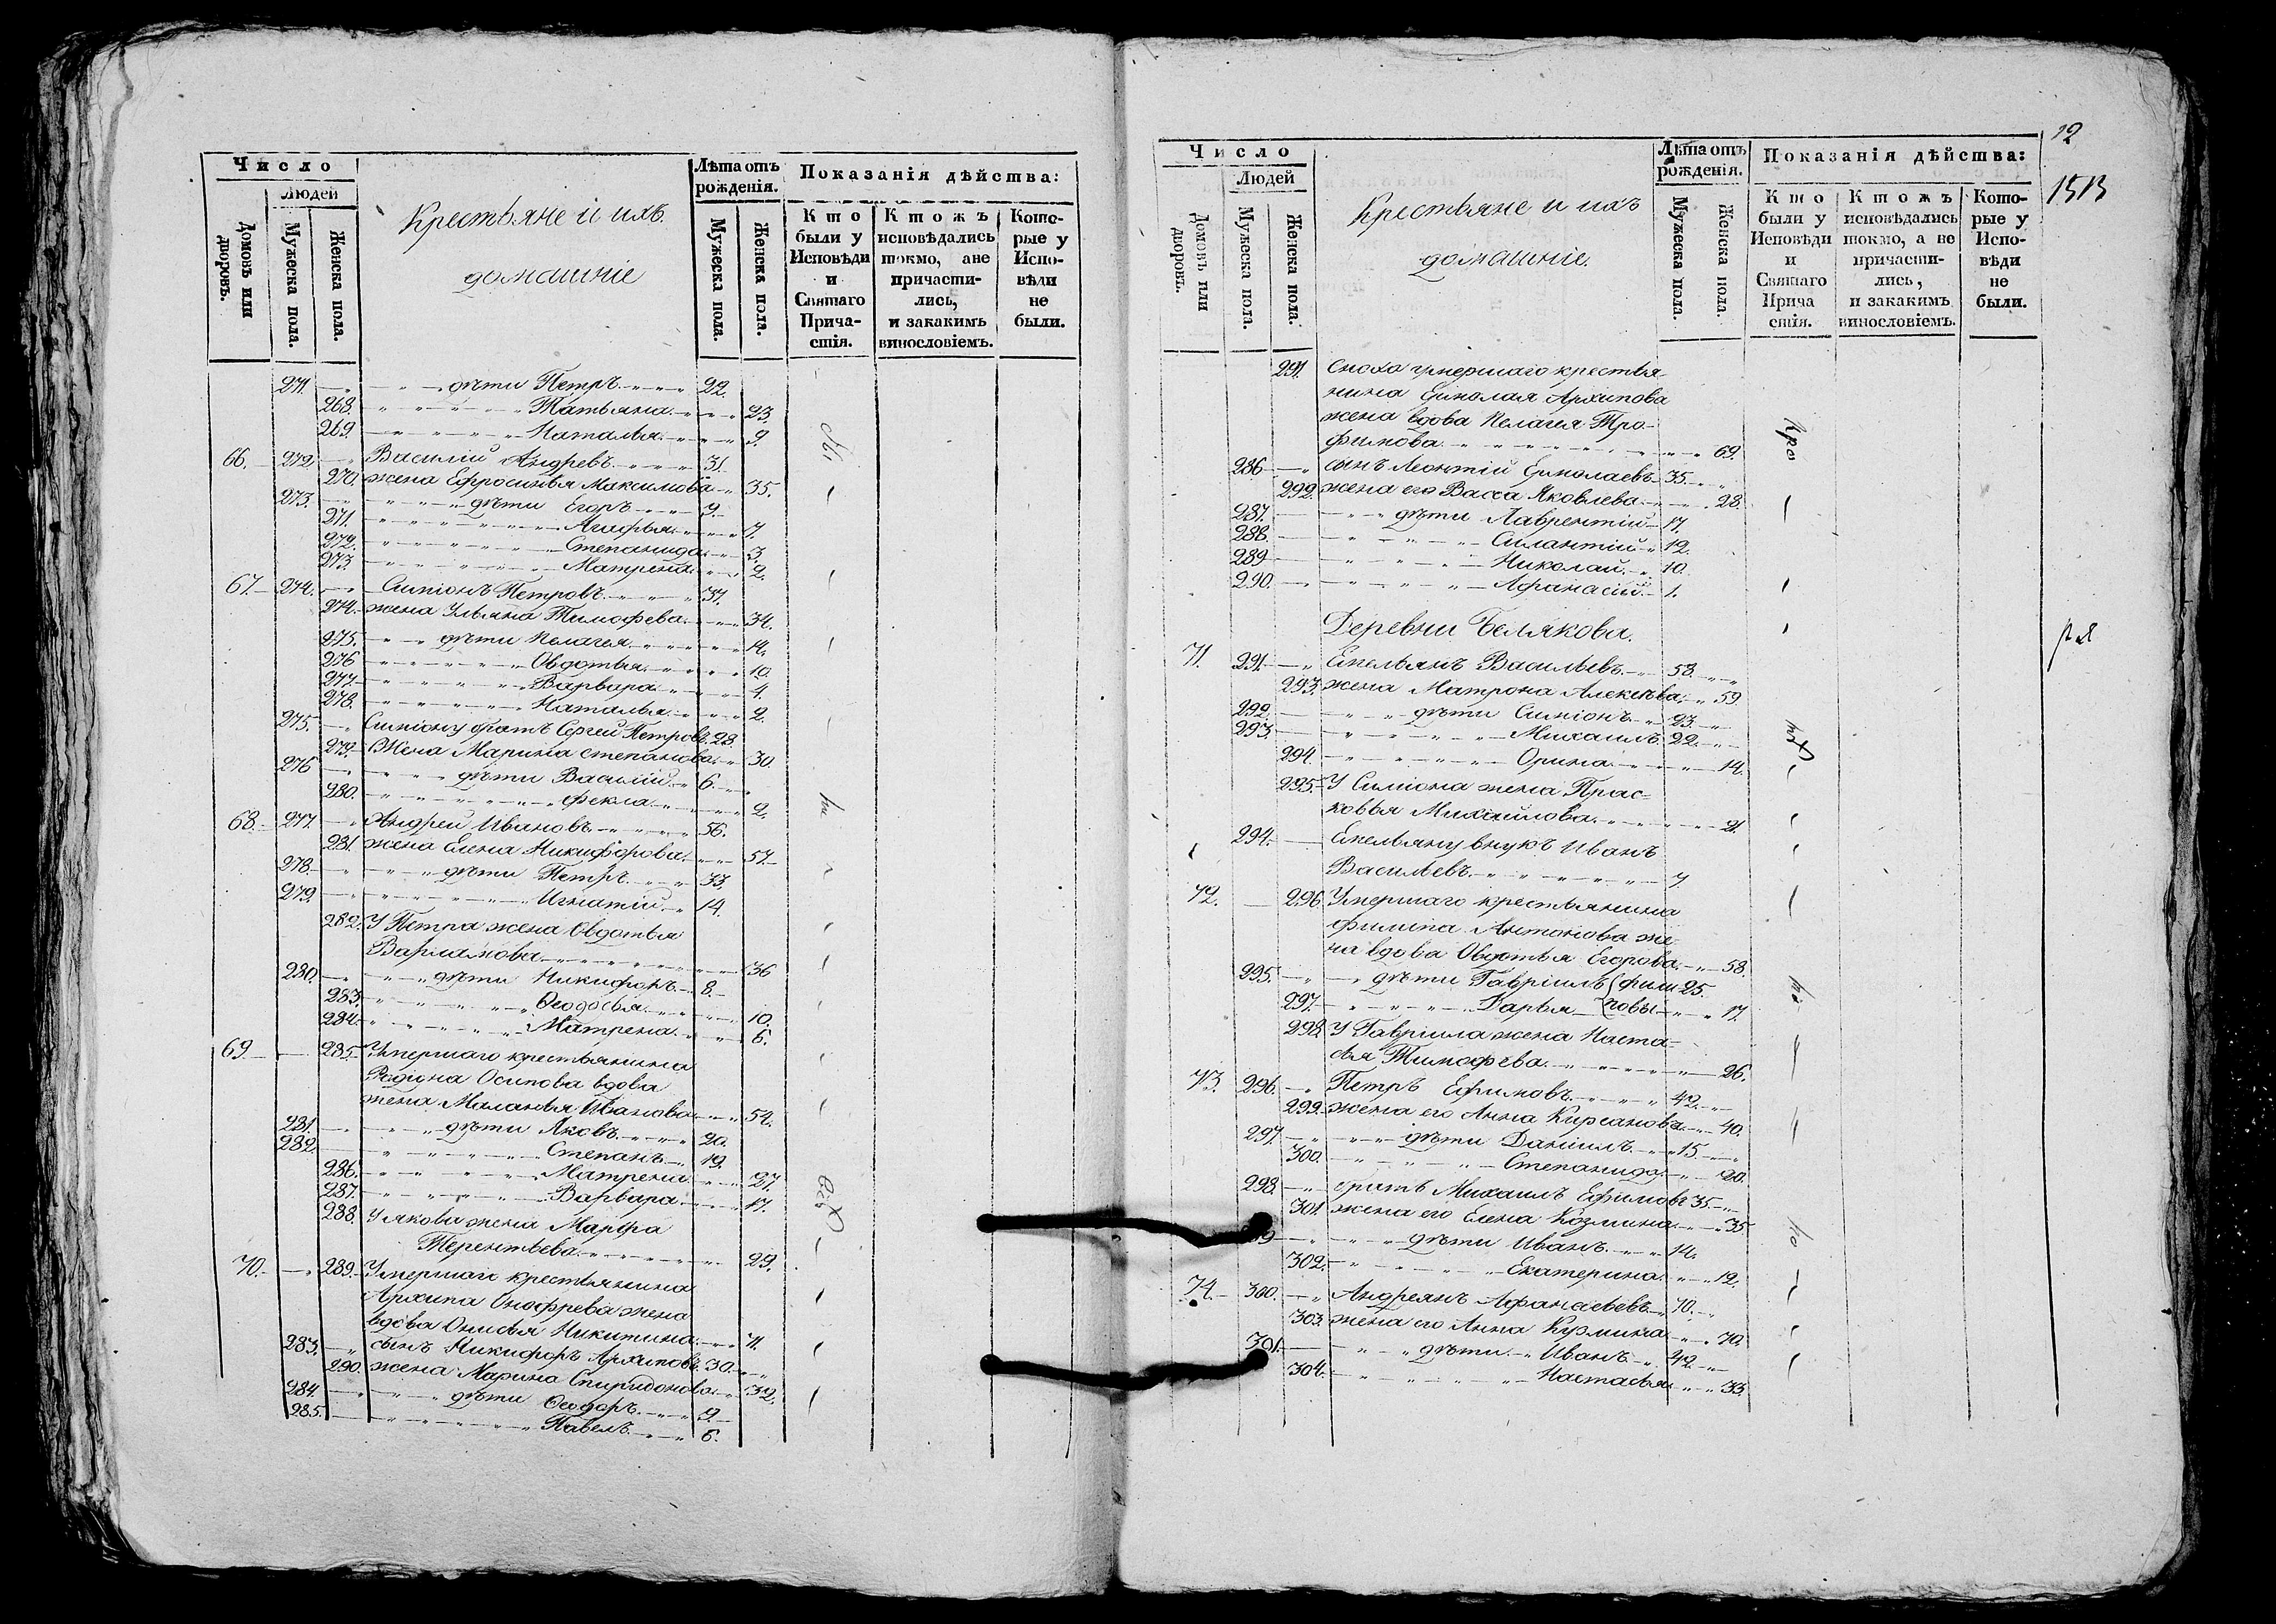 Число
Людей
Домовъ или дворовъ.
Мужеска пола.
Женска пола.
Крестьяне и ихъ
домашніе
Лѣта отъ рожденія.
Мужеска пола.
Женска пола.
Показанія дѣйства:
Кто были у Исповѣди и Святаго Прича-стія.
Ктожъ исповѣдались токмо, ане причасти-лись, и закакимъ винословіемъ.
Кото-рые у Испо-вѣди не были.
271. дѣти Петръ 22.
268. Татьяна 23.
269. Наталья 9.
66. 272. Василій Андревъ 31.
270. жена Ефросинья Максимова 35.
273. дѣти Егоръ 9.
271. Агафья 7.
272. Степанида 3.
273. Матрена 2.
67. 274. Симіонъ Петровъ 37.
274. жена Ульяна Тимофева 34.
275. дѣти Пелагея 14.
276 Овдотья 10.
277. Варвара 4.
278. Наталья 2.
275. Симіону братъ Сергей Петровъ 28.
279. Жена Марина степанова 30.
276 дѣти Василій 6.
280. Фекла 2.
68. 277. Андрей Ивановъ 56.
281. жена Елена Никифорова 57.
278. дѣти Петръ 33.
279. Игнатій 14.
282. У Петра жена Овдотья
Варламова 36
280. дѣти Никифоръ 8.
283. Ѳеодосья 10.
284. Матрена 6.
69. 285. Умершаго крестьянина
Родіона Осипова вдова
жена Маланья Иванова 54.
281. дѣти Яковъ 20.
282. Степанъ 19.
286. Матрена 27.
287. Варвара 17.
288. У Якова жена Марфа
Терентьева 29.
70. 289. Умершаго крестьянина
Архипа Онофрева жена
вдова Онисья Никитина 71.
283. сынъ Никифоръ Архиповъ 30.
290. жена Марина Спиридонова 32.
284. дѣти Ѳеодоръ 9.
285. Павелъ 6.
12
1513
Число
Людей
Домовъ или дворовъ.
Мужеска пола.
Женска пола.
Крестьяне и ихъ
домашніе.
Лѣта отъ рожденія.
Мужеска пола.
Женска пола.
Показанія дѣйства:
Кто были у Исповѣди и Святаго Прича стія.
Ктожъ исповѣдались токмо, а не причасти-лись, и закакимъ винословіемъ.
Кото-рые у Испо-вѣди не были.
291. Сноха умершаго крестья-
нина Ермолая Архипова
жена вдова Пелагея Тро-
фимова 69.
286 сынъ Леонтій Ермолаевъ 35.
292. жена его Васса Яковлева 28.
287. дѣти Лаврентій 17.
288. Силантій 12.
289 Николай 10.
290. Афанасій 1.
Деревни Белякова.
71. 291. Емельянъ Васильевъ 58.
293. жена Матрона Алексѣва 59.
292. дѣти Симіонъ 23.
293. Михаилъ 22.
294. Орина 14.
295. У Симіона жена Прас-
ковья Михайлова 21.
294. Емельяну внукъ Иванъ
Васильевъ 7
72. 296. Умершаго крестьянина
Филипа Антонова же
на вдова Овдотья Егорова 58.
295. дѣти Гавріилъ (Фили 25.
297. Дарья (повы 17.
298. У Гавріила жена Наста-
сья Тимофева 26.
73. 296. Петръ Ефимовъ 42.
299. жена его Анна Кирсанова 40.
297. дѣти Даніилъ 15.
300. Степанида 20.
298. братъ Михаилъ Ефимовъ 35.
301. жена его Елена Козмина 35
дѣти Иванъ 14.
302. Екатерина 12.
74. 300. Андреянъ Афанасьевъ 70.
303. жена его Анна Кузмина 70.
301. дѣти Иванъ 42.
304. Настасья 33.